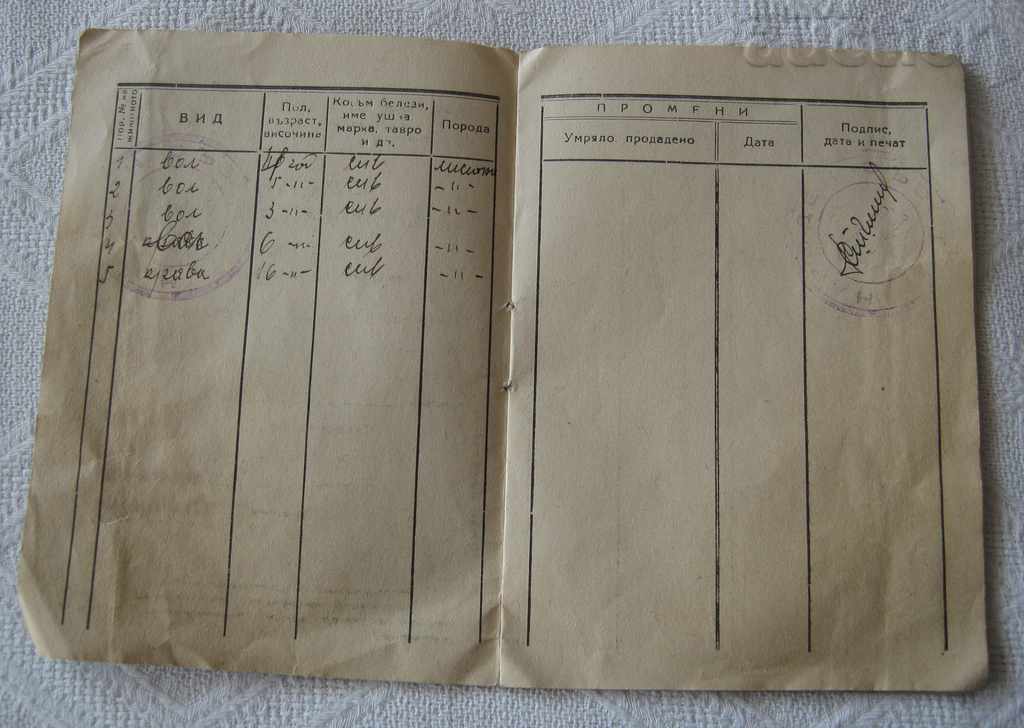 Пор. № на животното
ВИД
Пол, възраст, височина
Косъм белези, име ушна марка, тавро и др.
Порода
1 вол сив
2 вол 5 -〃- сив -〃-
3 вол 3 -〃- сив -〃-
4 6 -〃- сив -〃-
5 крава 16 -〃- сив -〃-
ПРОМЕНИ
Умряло продадено
Дата
Подпис, дата и печат